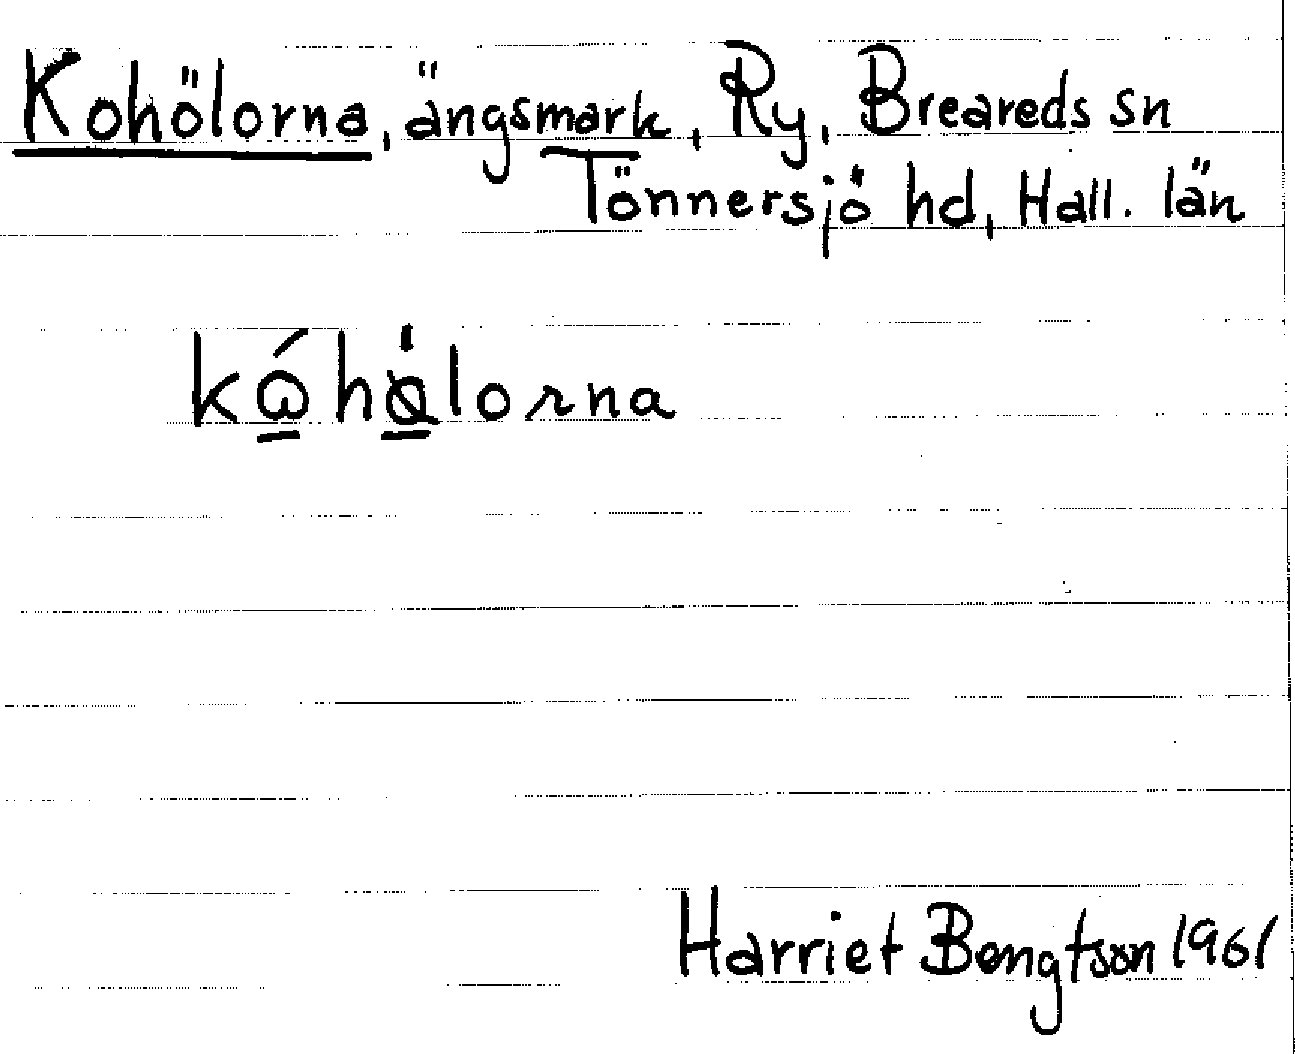 Kohölorna, ängsmark, Ry, Breareds sn
Tönnersjö hd, Hall. län
kóhòlorna
Harriet Bengtson 1961